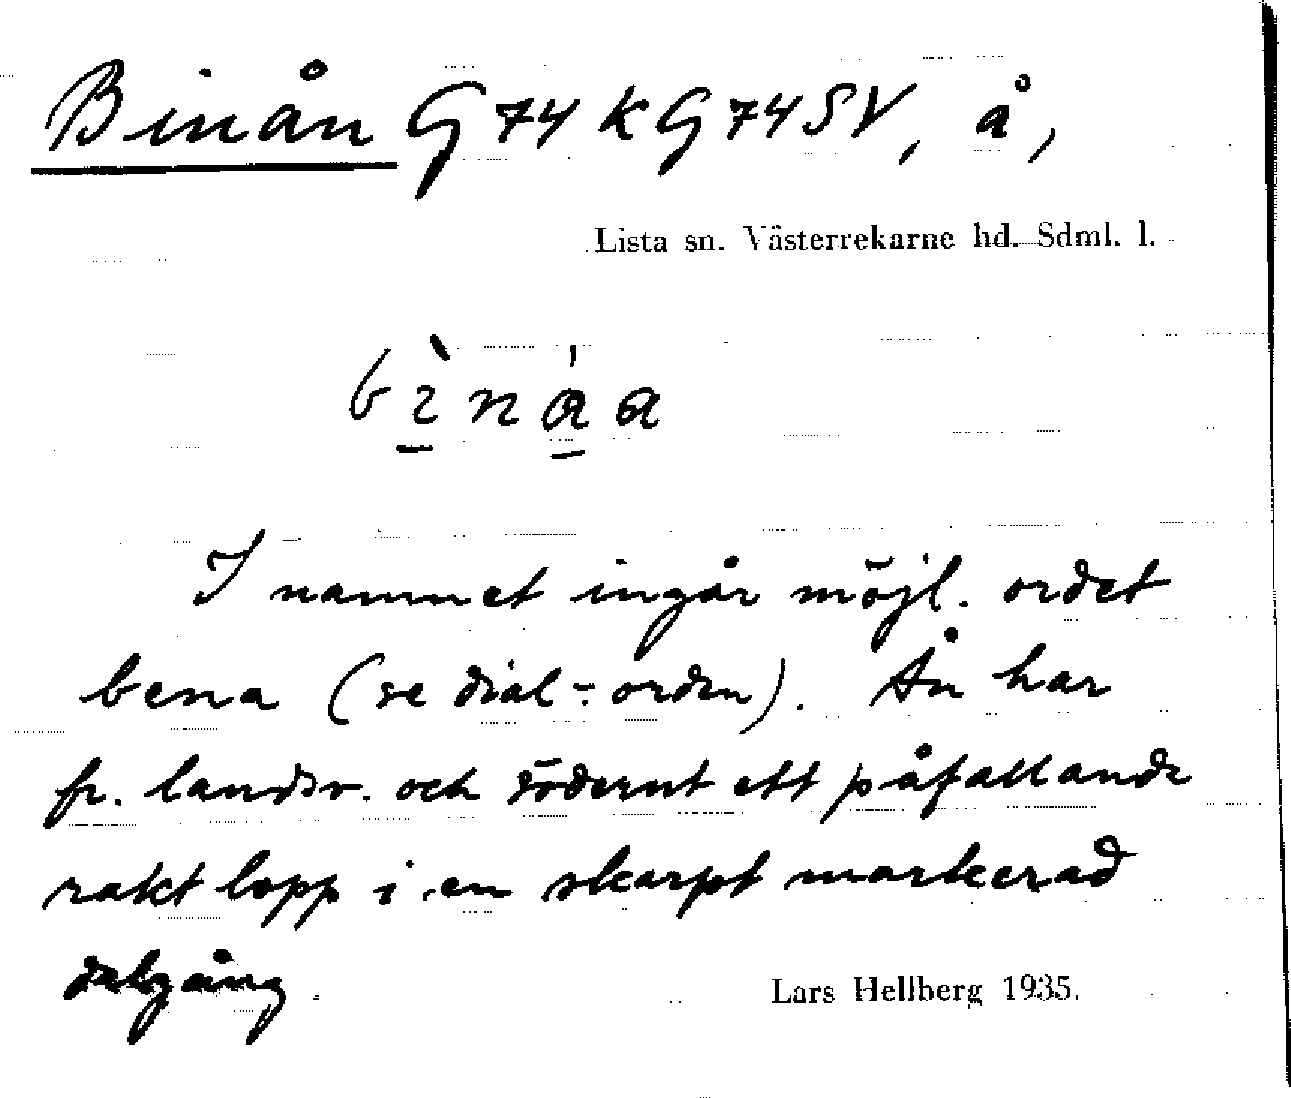 Binån G 74 k G 74 SV, å,
Lista sn. Västerrekarne hd. Sdml. l.
bìnáa
I namnet ingår möjl. ordet
bena (se dial-: orden). Ån har
fr. landsv. och söderut ett påfallande
rakt lopp i en skarpt markerad
dalgång.
Lars Hellberg 1935.